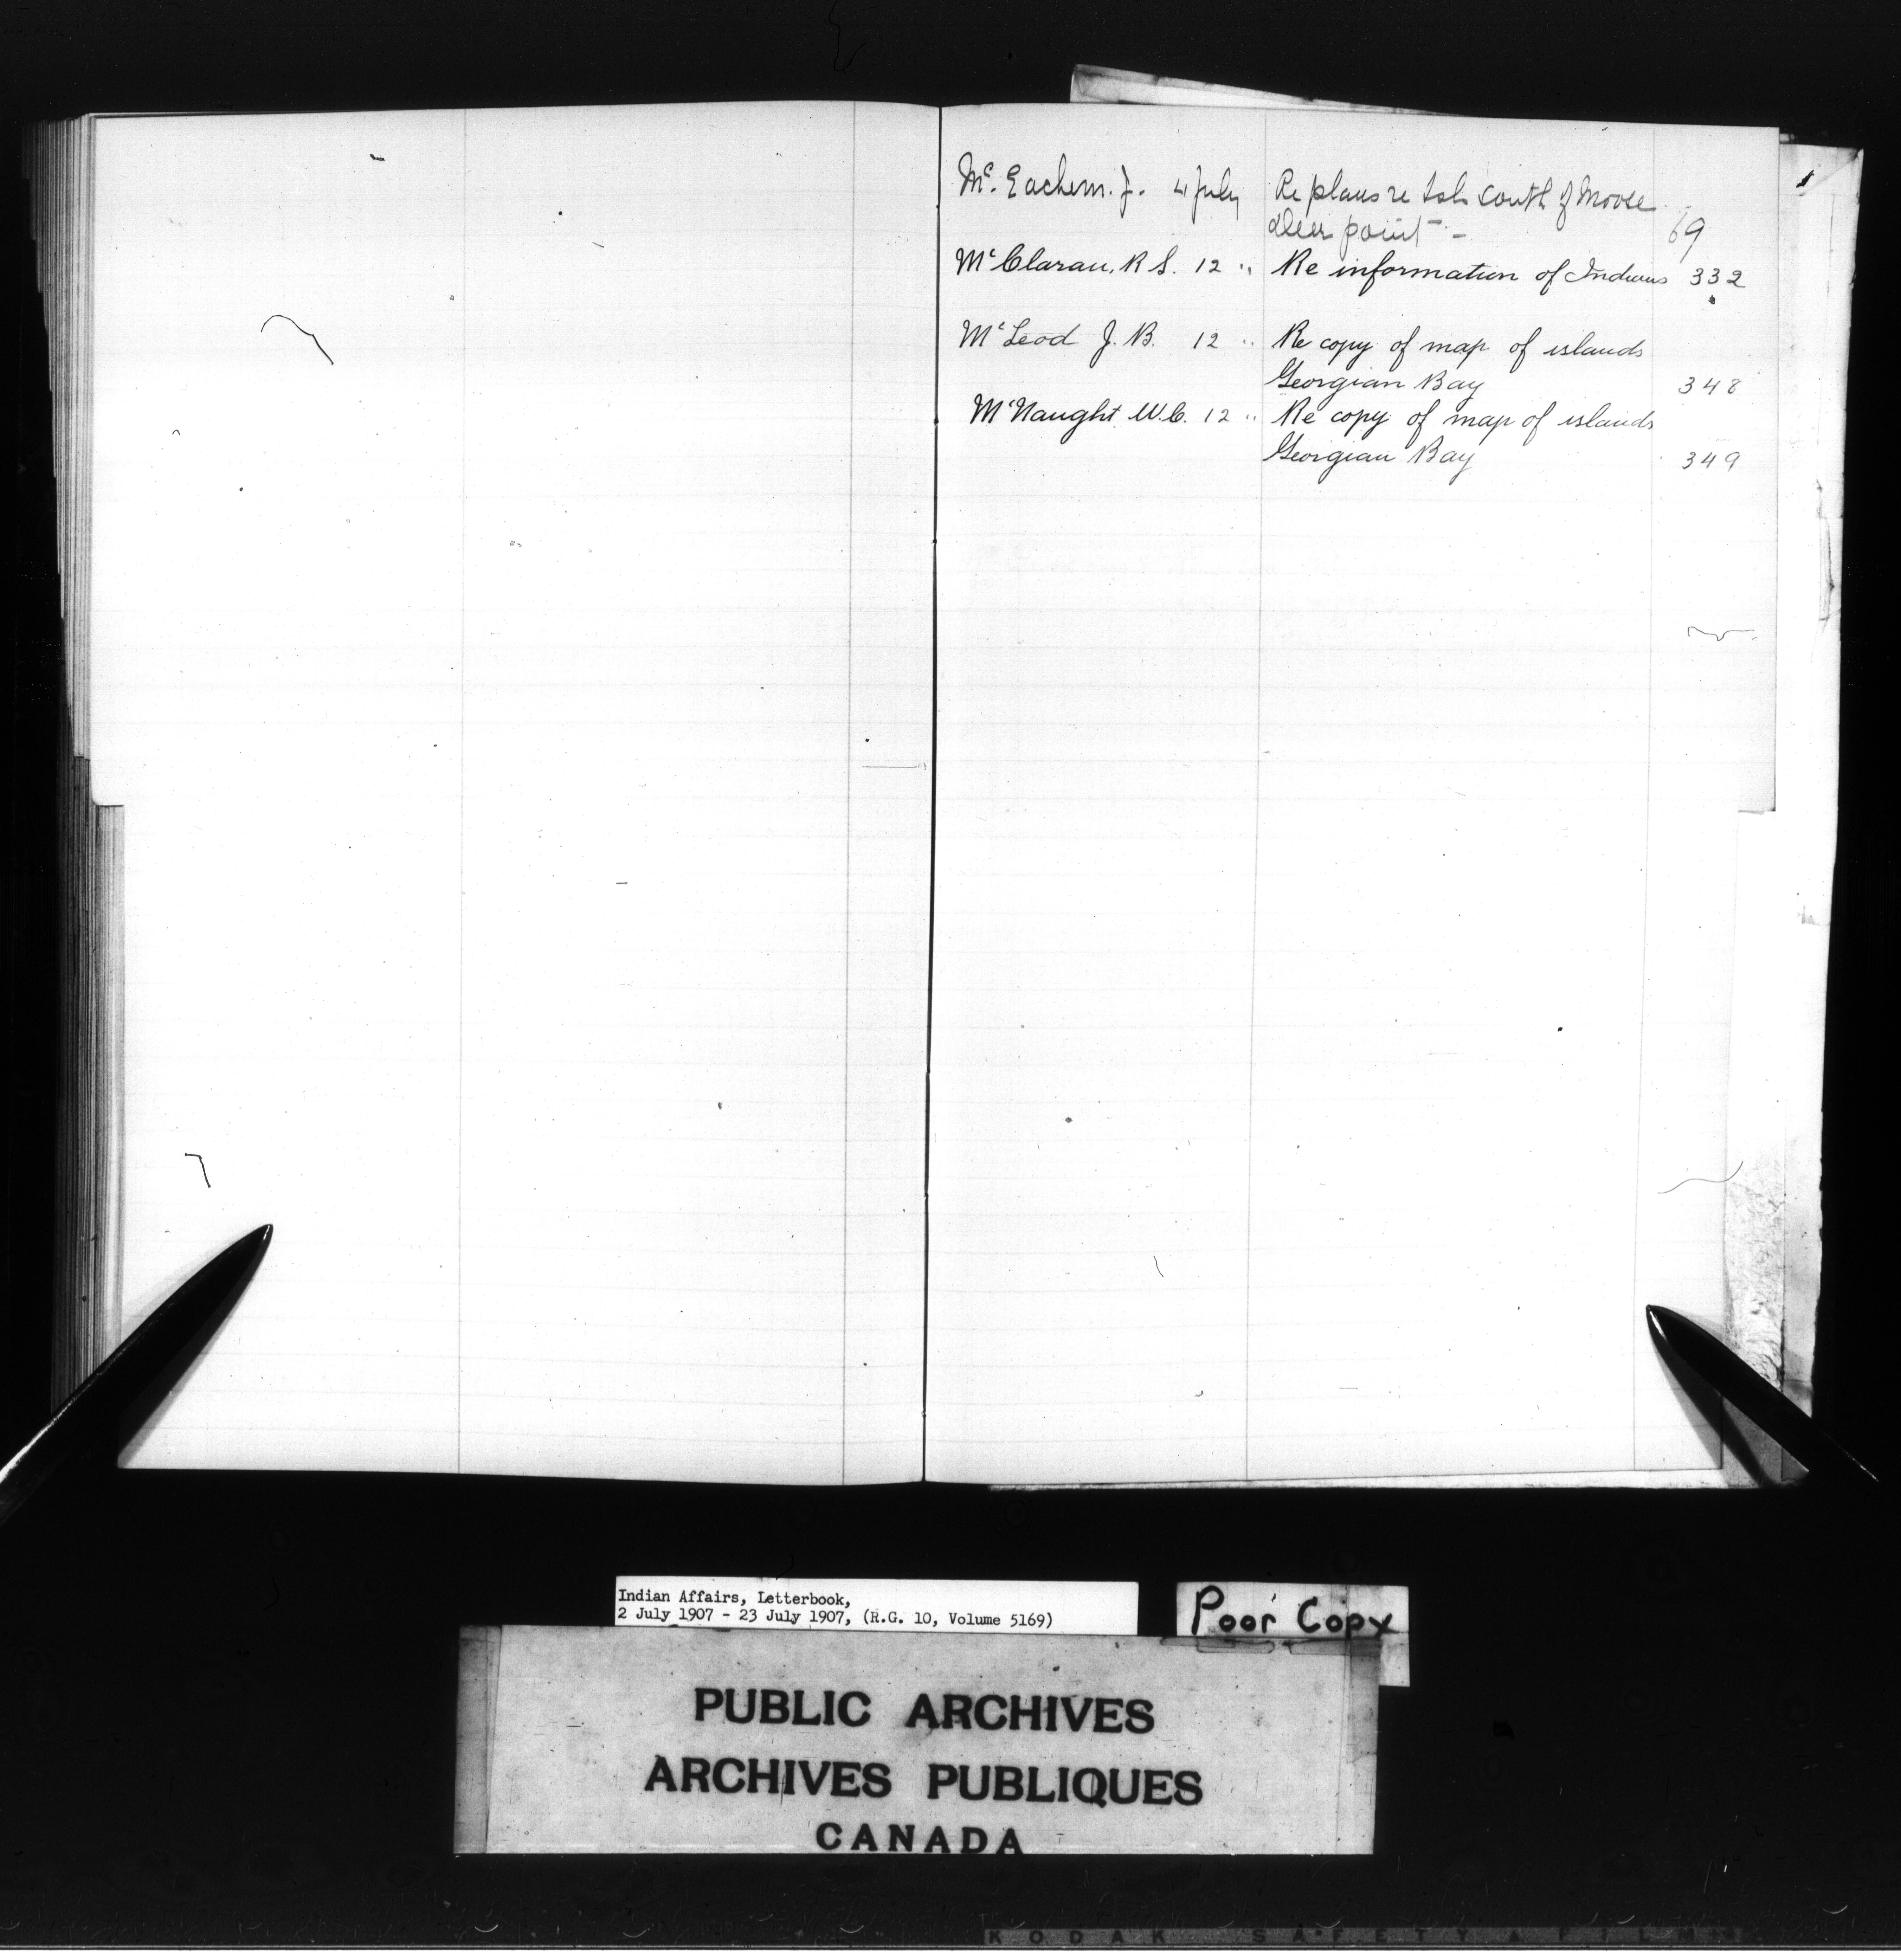 Mc. Eachern. J. 4 July Re plans re Isls south of Moose
deer point - 69
McClaran, R S. 12 " Re information of Indians 332
McLeod J. B. 12 " Re copy of map of islands
Georgian Bay 348
McNaught W.C. 12 " Re copy of map of islands
Georgian Bay 349
Indian Affairs, Letterbook,
2 July 1907 - 23 July 1907, (R.G. 10, Volume 5169)
Poor Copy
PUBLIC ARCHIVES
ARCHIVES PUBLIQUES
CANADA
KODAK SAFETY A FILM